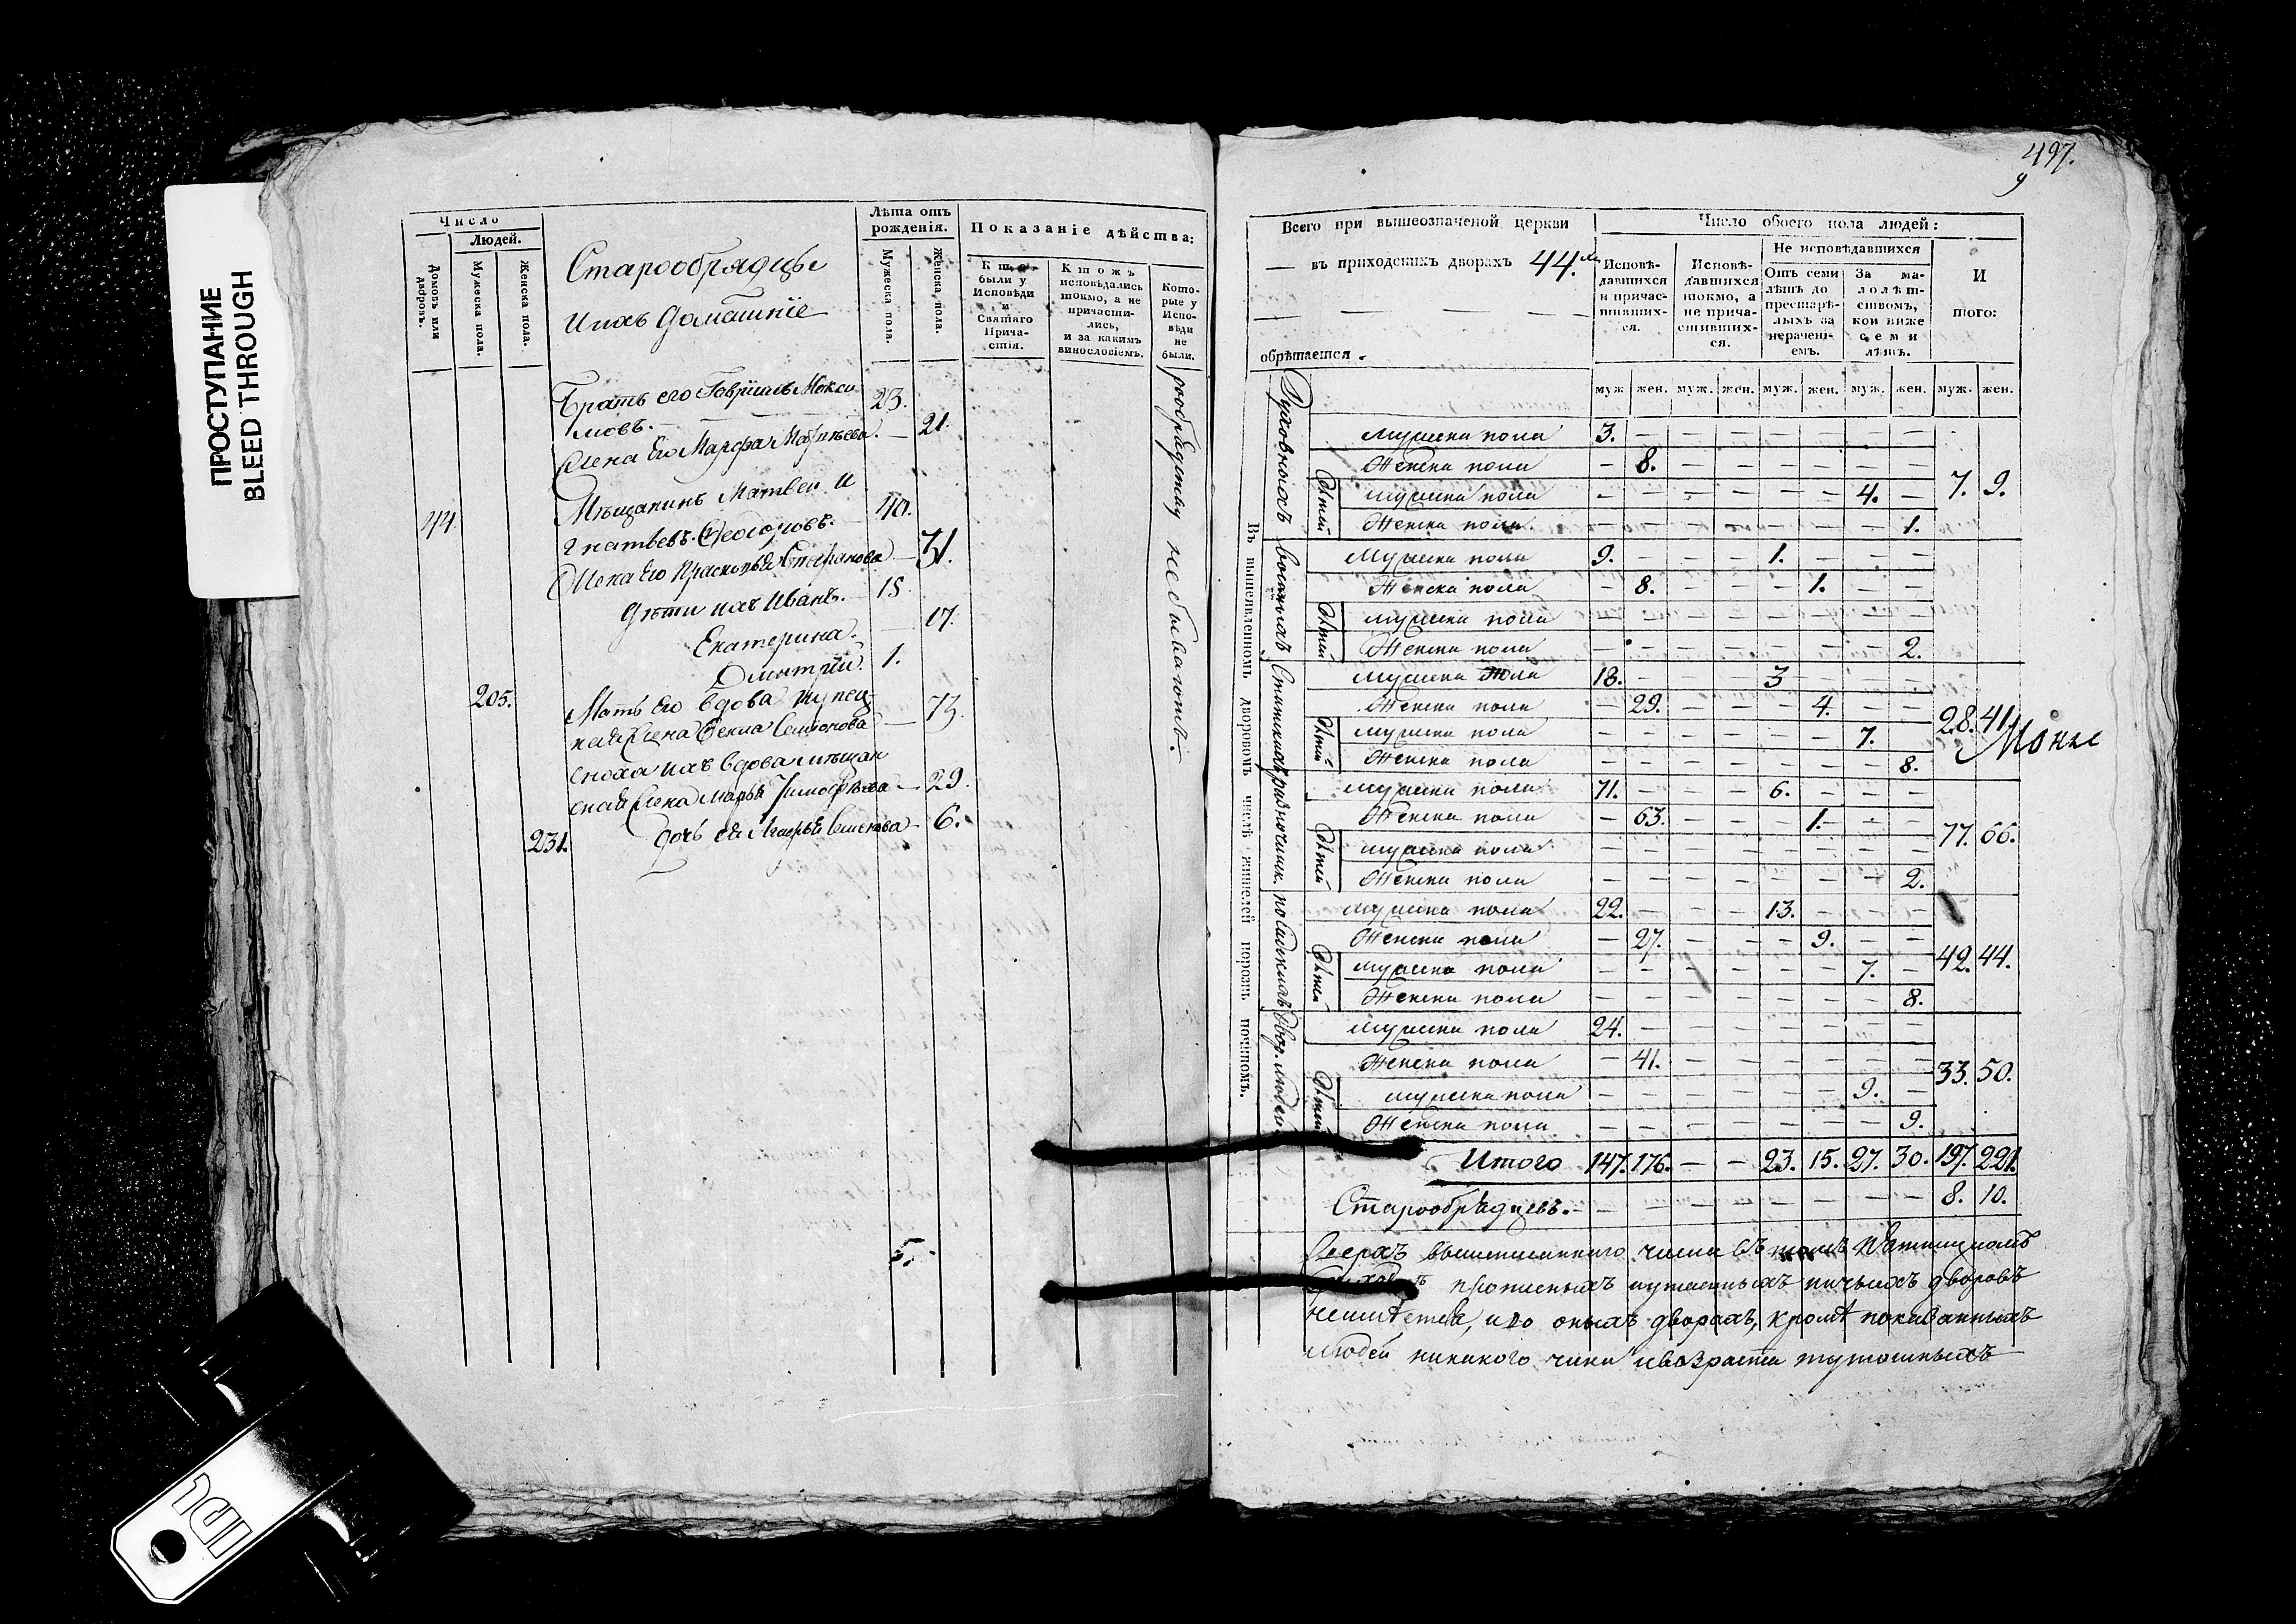 ПРОСТУПАНИЕ
BLEED THROUGH
Число
Людей.
Домовъ или дворовъ.
Мужеска пола.
Женска пола.
Старообрядцы
и ихъ домашніе
Лѣта отъ рожденія.
Мужеска пола.
Женска пола.
Показаніе дѣйства:
Кто были у Исповѣди и Святаго Причастія.
Ктожъ исповѣдались токмо, а не причастились, и за какимъ винословіемъ.
Которые у Исповѣди не были.
Братъ его Гавріилъ Макси 23.
мовъ.
Жена его Марфа Матвѣева. 21.
44 Мѣщанинъ Матвей И 40.
гнатьевъ
Жена его Прасковья Стефанова 31.
Дѣти ихъ Иванъ. 15
Екатерина. 17.
Дмитрій. 1.
205. Мать его вдова купец
кая жена Фекла Семіонова 73.
сноха ихъ вдова мѣщан
ская жена Марья Тимофѣева 29.
231. дочь ея Марья 6.
не бываютъ.
5.
497.
9
Всего при вышеозначеной церкви
въ приходскихъ дворахъ 44.
обрѣтается.
Число обоего пола людей:
Исповѣдавшихся и причастившихся.
Исповѣдавшихся токмо, а не причастившихся.
Не исповѣдавшихся
Отъ семи лѣтъ до престарѣлыхъ за нераченіемъ.
За малолѣтствомъ, кои ниже семи лѣтъ.
И того:
муж. жен. муж. жен. муж. жен. муж. жен. муж. жен.
Въ вышеявленномъ дворовомъ числѣ жителей порознь починомъ.
Духовныхъ
мужеска пола 3. — — — — — — —
Женска пола — 8. — — — — — —
Дѣтей
мужеска пола — — — — — — 4. — 7. 9.
Женска пола — — — — — — — 1.
военныхъ
мужеска пола 9. — — — 1. — — —
Женска пола — 8. — — — 1. — —
Дѣтей
мужеска пола — — — — — — — —
Женска пола — — — — — — — 2.
Статскихъ
мужеска пола 18. — — — 3 — — —
Женска пола — 29. — — — 4. — — 28. 41.
Дѣтей
мужеска пола — — — — — — 7. —
Женска пола — — — — — — — 8.
разночинц.
мужеска пола 71. — — — 6. — — —
Женска пола — 63. — — — 1. — — 77. 66.
Дѣтей
мужеска пола — — — — — — — —
Женска пола — — — — — — — 2.
посадскихъ
мужеска пола 22. — — — 13. — — —
Женска пола — 27. — — — 9. — — 42. 44.
Дѣтей
мужеска пола — — — — — — 7. —
Женска пола — — — — — — — 8.
Двор. людей
мужеска пола 24. — — — — — — —
Женска пола — 41. — — — — — — 33. 50.
Дѣтей
мужеска пола — — — — — — 9. —
Женска пола — — — — — — — 9.
Итого 147. 176. — — 23. 15. 27. 30. 197. 221.
Старообрядцевъ. — — — — — — — — 8. 10.
Сверхъ вышеписаннаго числа въ томъ
прописныхъ и утаенныхъ ничьихъ дворовъ
неимѣется, и во оныхъ дворахъ, кромѣ показанныхъ
людей никакого чина и возраста тутошныхъ